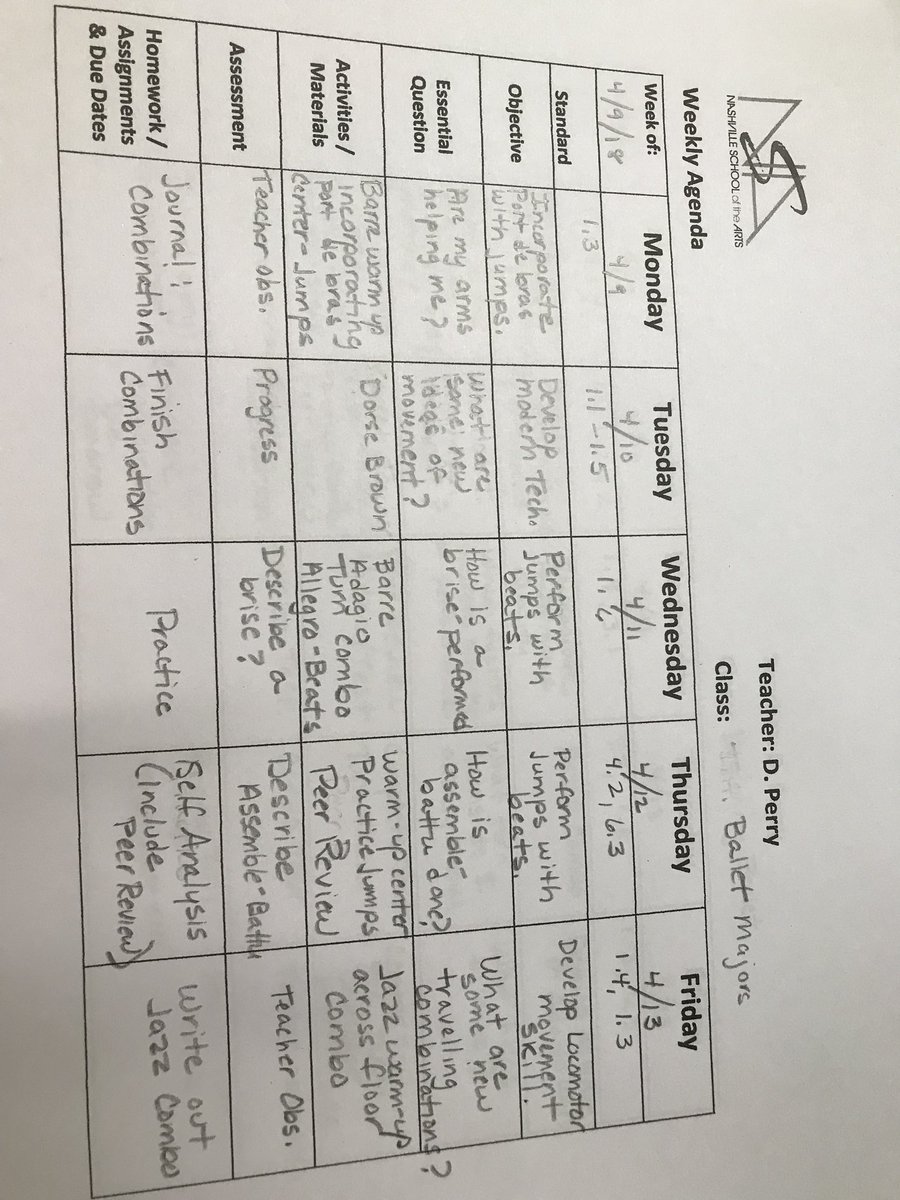 NASHVILLE SCHOOL of the ARTS
Weekly Agenda
Teacher: D. Perry
Class: Ballet Majors
Week of: 4/9/18
Monday 4/9
Tuesday 4/10
Wednesday 4/11
Thursday 4/12
Friday 4/13
Standard
1.3
1.1 - 1.5
1.6
4.2, 6.3
1.4, 1.3
Objective
Incorporate
Port de bras
with jumps.
Develop Tech.
modern
Perform
Jumps with
beats.
Perform
Jumps with
beats.
Develop Locomotor
movement
skill.
Essential
Question
Are my arms
helping me?
What are
some new
ideas of
movement?
How is a
brise performed
How is
assemble-
battu done?
What are
some new
travelling
combinations?
Activities /
Materials
Barre warm up
incorporating
Port de bras
Center-Jumps
Dorse Brown
Barre
Adagio
Turn Combo
Allegro-Beats
Warm-up center
Practice Jumps
Peer Review
Jazz warm-up
across floor
Combo
Assessment
Teacher obs.
Progress
Describe a
brise?
Describe
Assemble-Battu
Teacher Obs.
Homework /
Assignments
& Due Dates
Journal:
Combinations
Finish
Combinations
Practice
Self Analysis
(Include
Peer Review)
Write out
Jazz Combo